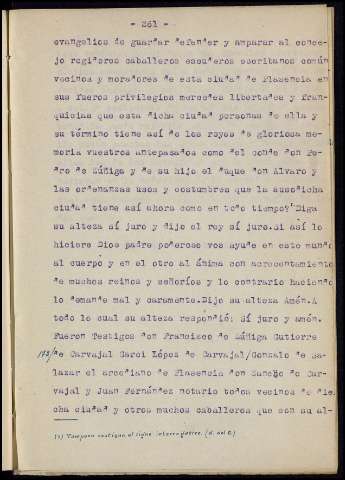 - 261 -
evangelios de guardar defander y amparar al conce-
jo regidores caballeros escuderos escribanos común
vecinos y moradores de esta ciudad de Plasencia en
sus fueros privilegios mercedes libertades y fran-
quicias que esta dicha ciudad personas de ella y
su término tiene así de los reyes de gloriosa me-
moria vuestros antepasados como del conde don Pe-
dro de Zúñiga y de su hijo el duque don Alvaro y
las ordenanzas usos y costumbres que la susodicha
ciudad tiene así ahora como en todo tiempo? Diga
su alteza sí juro y dijo el rey sí juro.Si así lo
hiciere Dios padre poderoso vos ayude en este mundo
al cuerpo y en el otro al ánima con acrecentamiento
de muchos reinos y señoríos y lo contrario haciendo
lo demande mal y caramente.Dijo su alteza Amén.A
todo lo cual su alteza respondió: Sí juro y amén.
Fueron Testigos don Francisco de Zúñiga Gutierre
173/ de Carvajal Garci López de Carvajal/Gonzalo de Sa-
lazar el arcediano de Plasencia don Sancho de Car-
vajal y Juan Fernández notario todos vecinos de di-
cha ciudad y otros muchos caballeros que son su al-
(1) Tampoco contiene el signo interrogativo. (N. del C.)